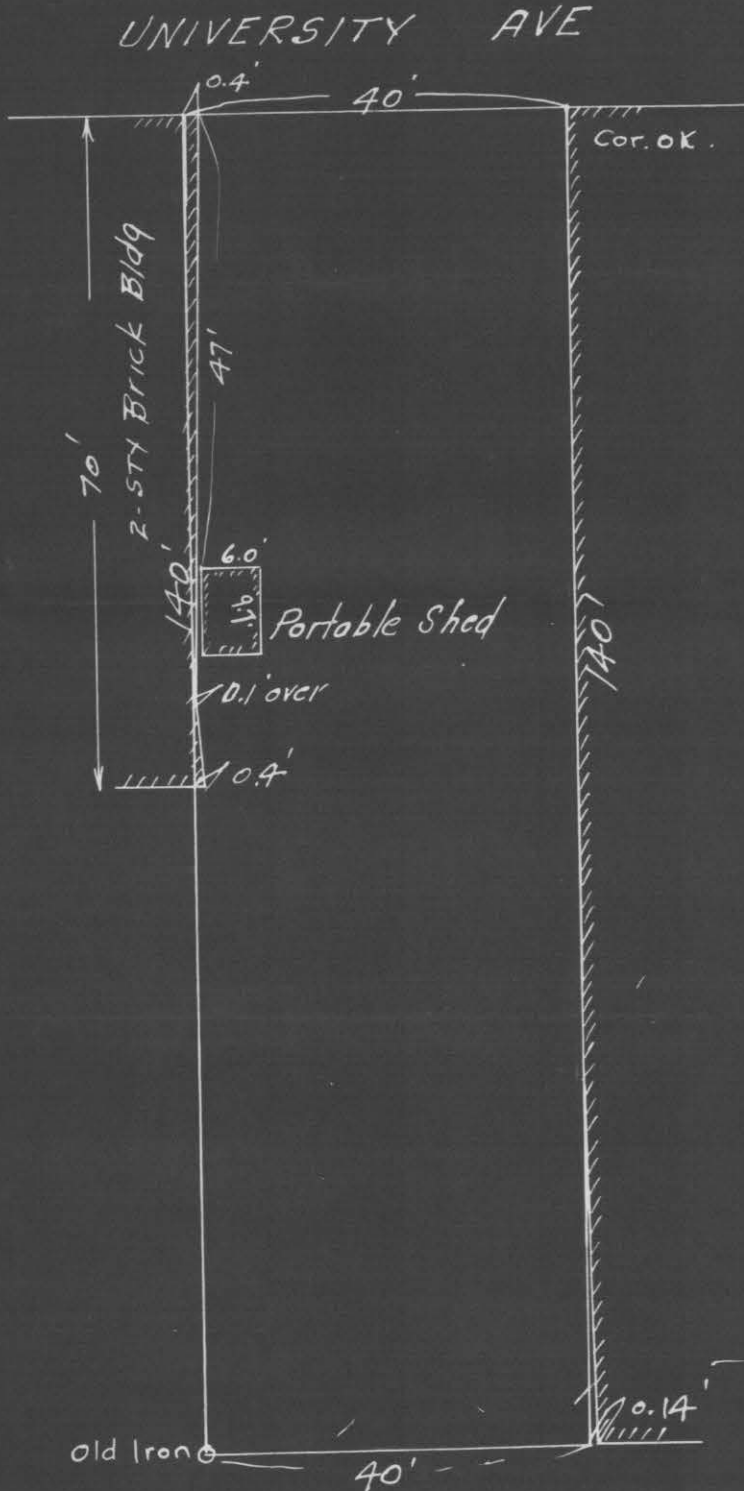 UNIVERSITY AVE
0.4'
40'
Cor. OK.
2-STY Brick Bldg
47'
70'
140'
6.0'
9.1'
Portable Shed
140'
0.1' over
0.4'
0.14'
Old Iron
40'